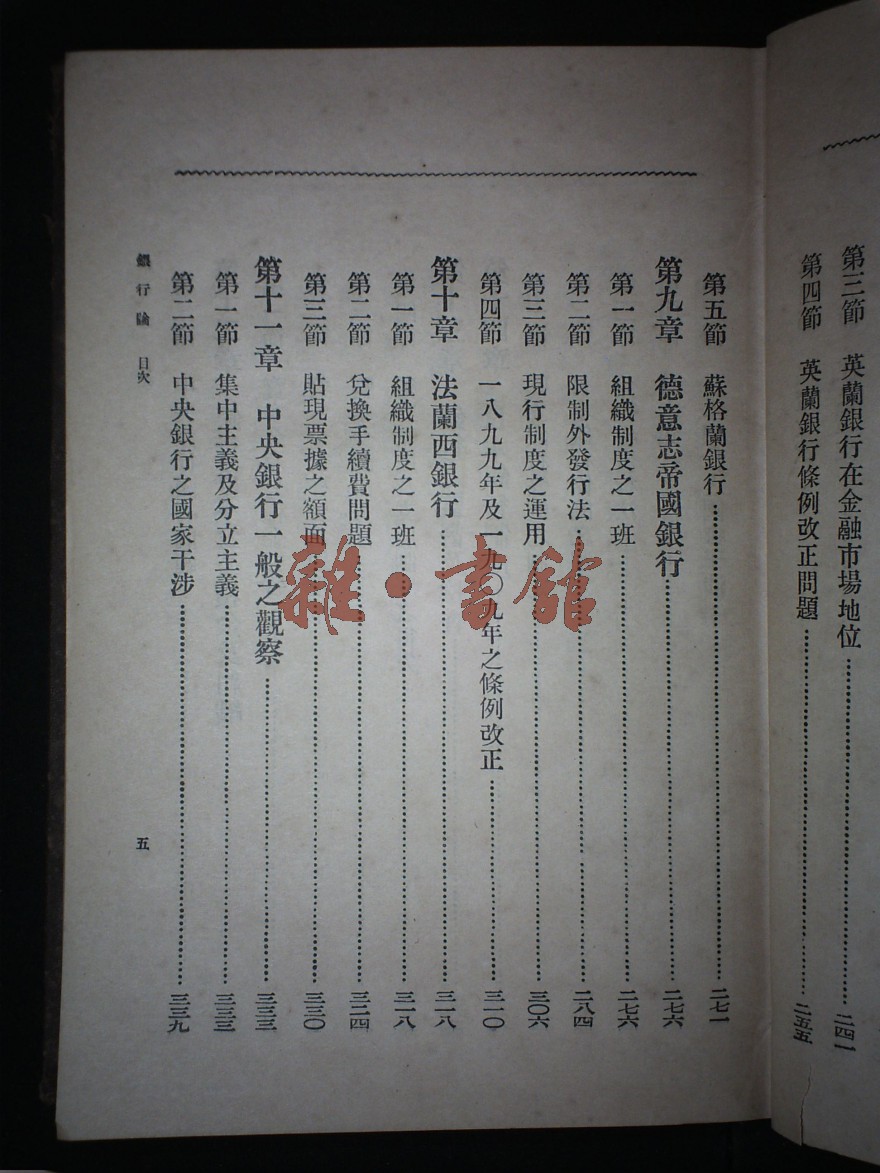 第三節　英蘭銀行在金融市場地位……二四一
第四節　英蘭銀行條例改正問題……二五五
第五節　蘇格蘭銀行……二七一
第九章　德意志帝國銀行……二七六
第一節　組織制度之一班……二七六
第二節　限制外發行法……二八四
第三節　現行制度之運用……三〇六
第四節　一八九九年及一九〇九年之條例改正……三一〇
第十章　法蘭西銀行……三一八
第一節　組織制度之一班……三一八
第二節　兌換手續費問題……三二四
第三節　貼現票據之額面……三三〇
第十一章　中央銀行一般之觀察……三三三
第一節　集中主義及分立主義……三三三
第二節　中央銀行之國家干涉……三三九
銀行論　目次
五
雜·書館